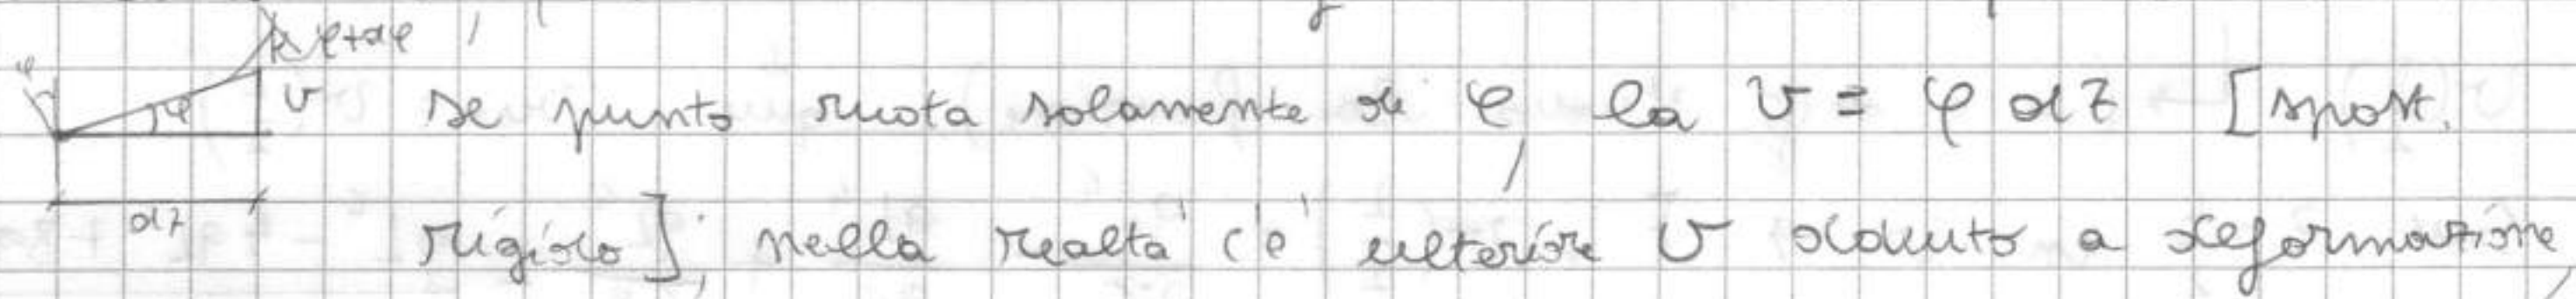 φ+dφ
φ
φ v se punto ruota solamente di φ, la v = φ dz [spost.
dz rigido]; nella realtà c'è ulteriore v dovuto a deformazione,